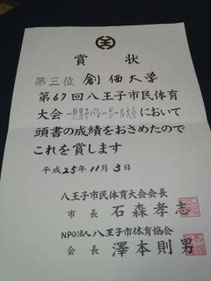 賞状
第三位 創価大学
第67回八王子市民体育
大会一般男子バレーボール大会において
頭書の成績をおさめたので
これを賞します
平成25年11月3日
八王子市民体育大会会長
市長 石森孝志
NPO法人八王子市体育協会
会長 澤本則男